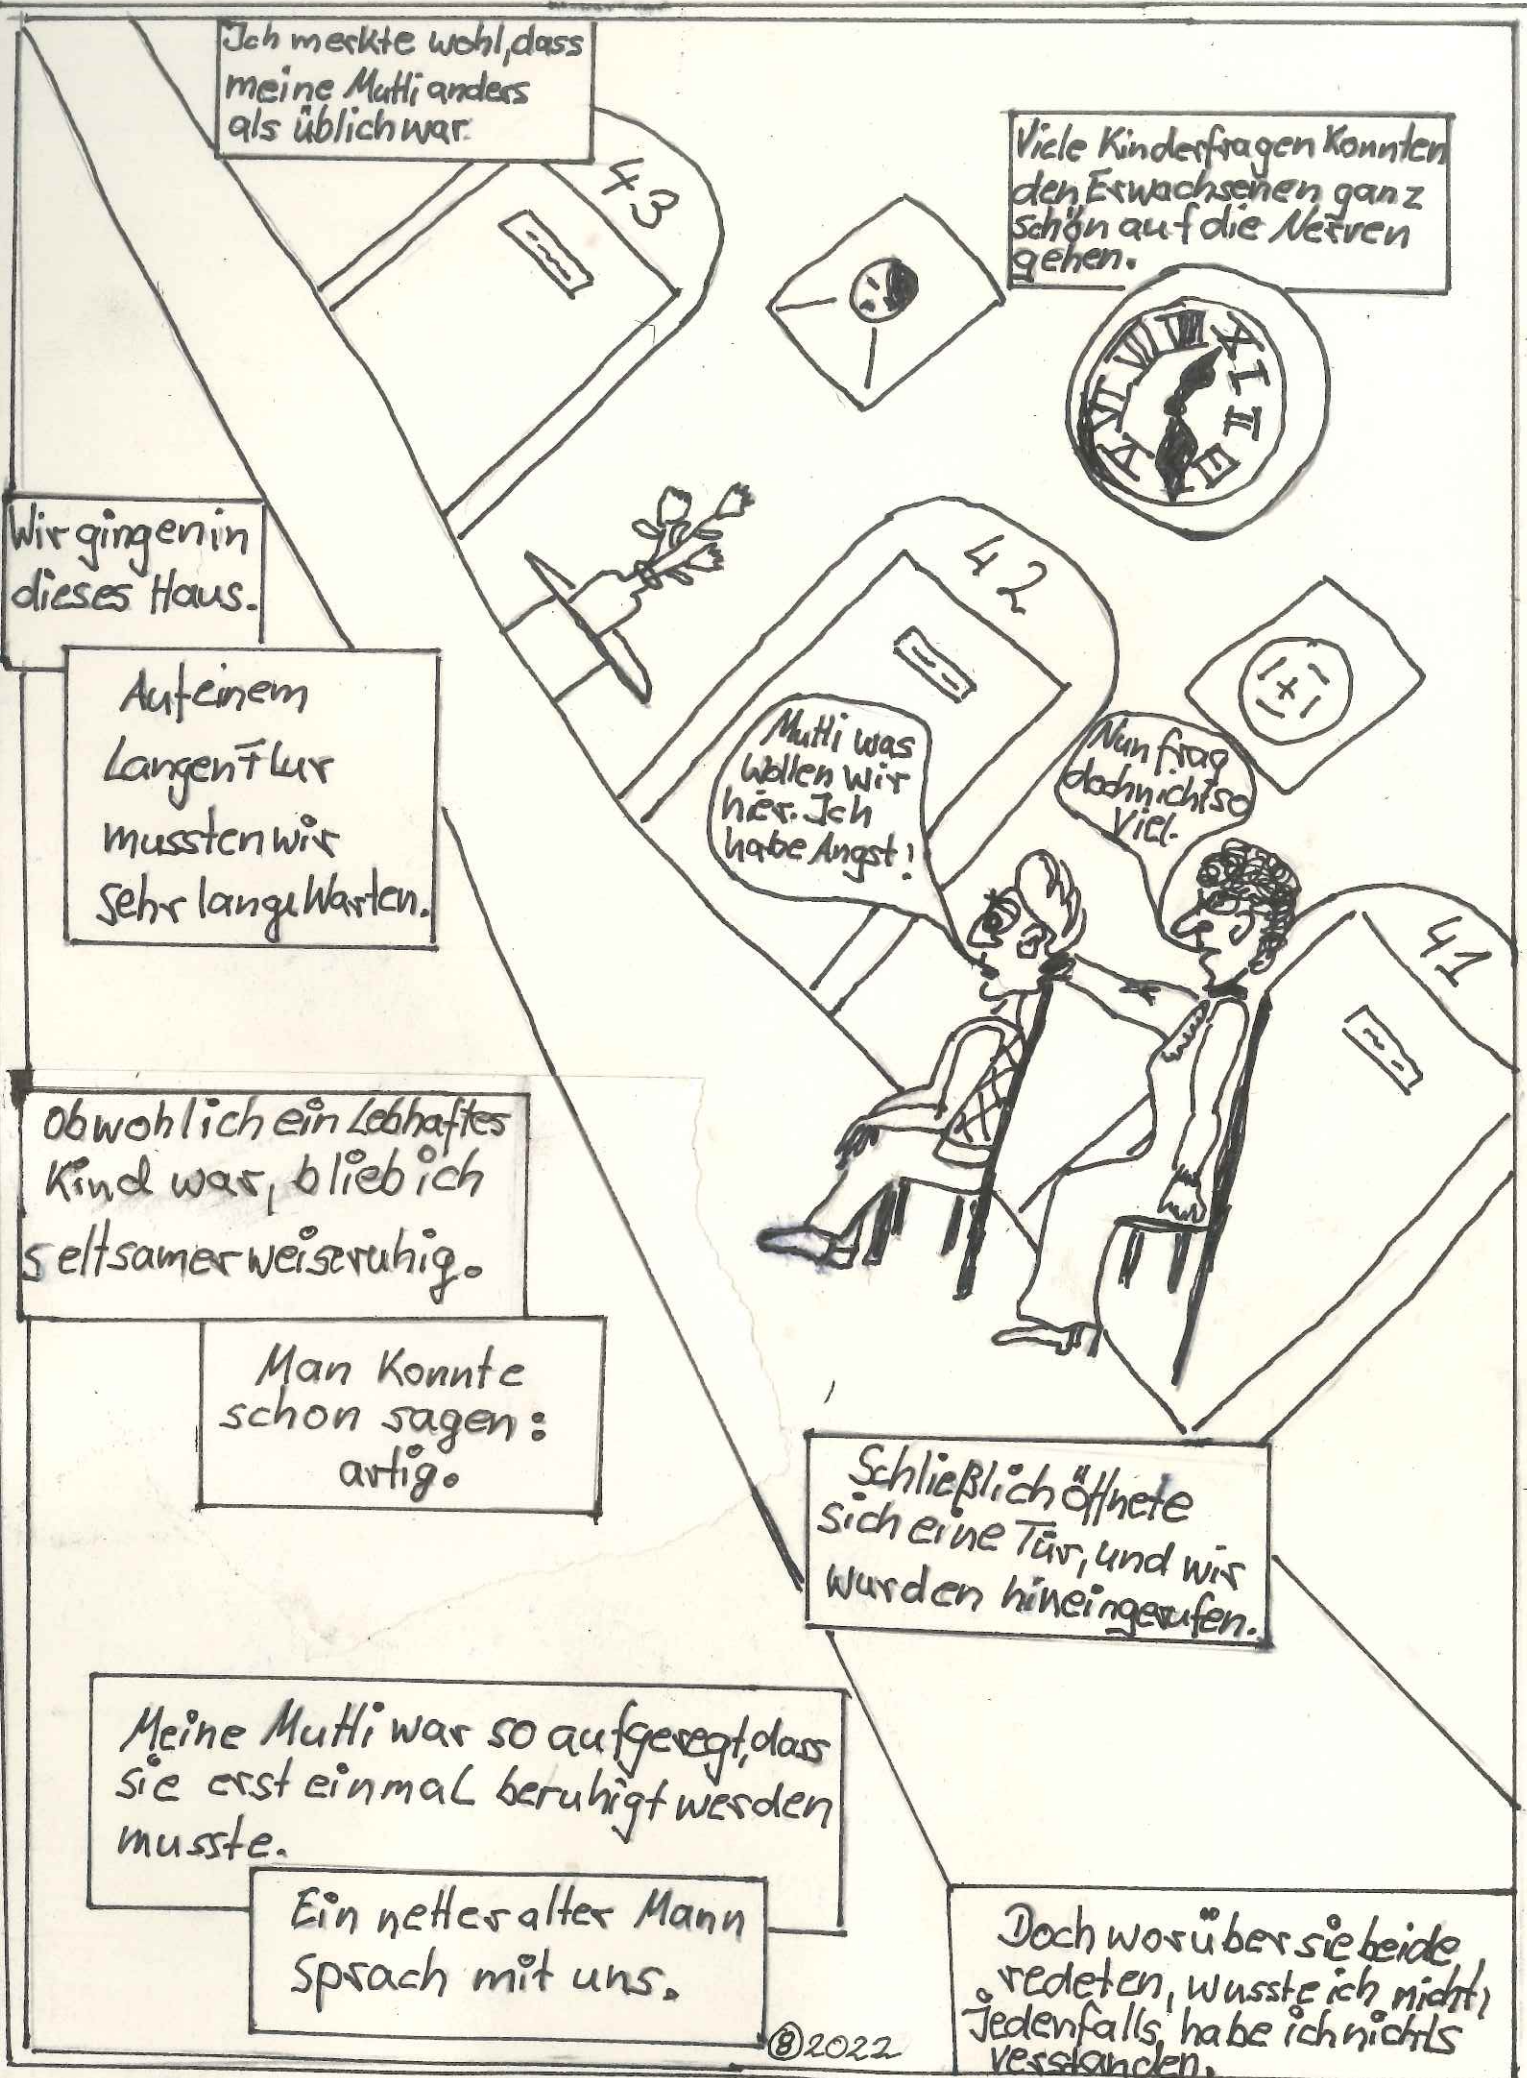 Ich merkte wohl, dass
meine Mutti anders
als üblich war.
43
Viele Kinderfragen konnten
den Erwachsenen ganz
schön auf die Nerven
gehen.
Wir gingen in
dieses Haus.
42
Auf einem
langen Flur
mussten wir
sehr lange warten.
Mutti was
wollen wir
hier. Ich
habe Angst!
Nun frag
doch nicht so
viel.
41
Obwohl ich ein lebhaftes
Kind war, blieb ich
seltsamerweise ruhig.
Man konnte
schon sagen:
artig.
Schließlich öffnete
sich eine Tür, und wir
wurden hineingerufen.
Meine Mutti war so aufgeregt, dass
sie erst einmal beruhigt werden
musste.
Ein netter alter Mann
sprach mit uns.
Doch worüber sie beide
redeten, wusste ich nicht,
Jedenfalls, habe ich nichts
verstanden.
8 2022